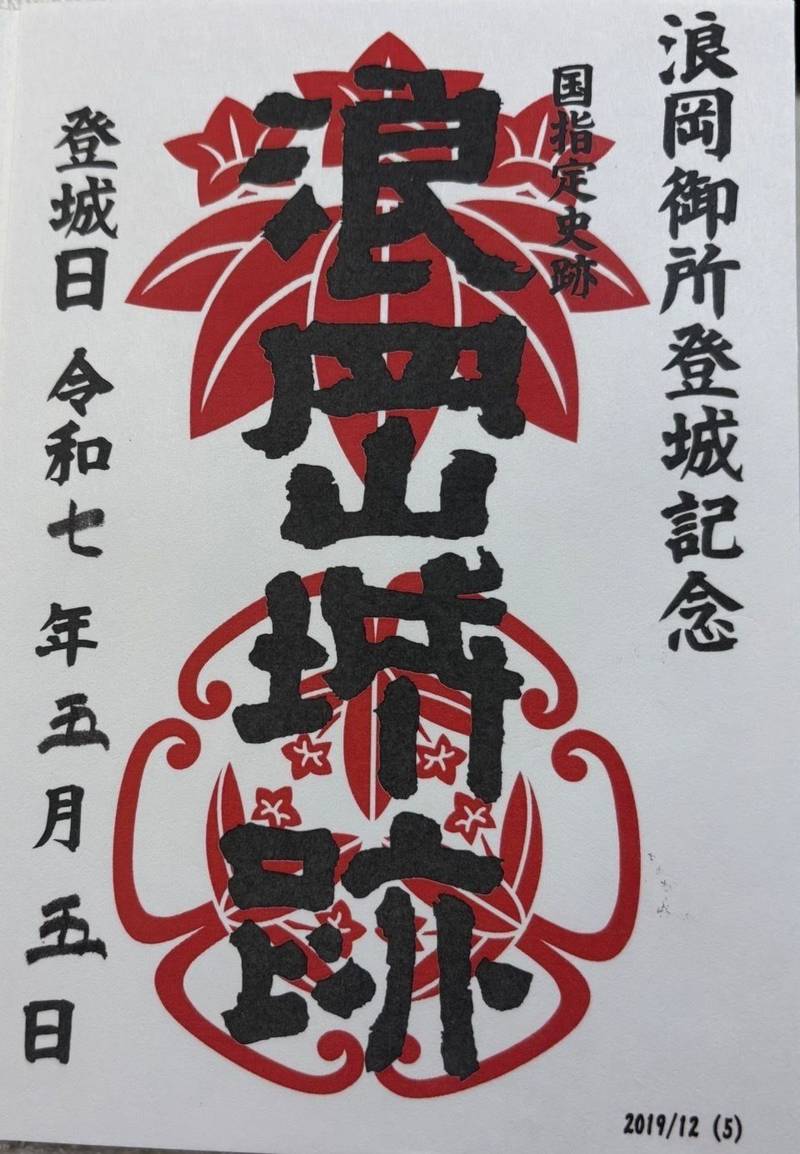 浪岡御所登城記念
国指定史跡
浪岡城跡
登城日 令和七年五月五日
2019/12 (5)